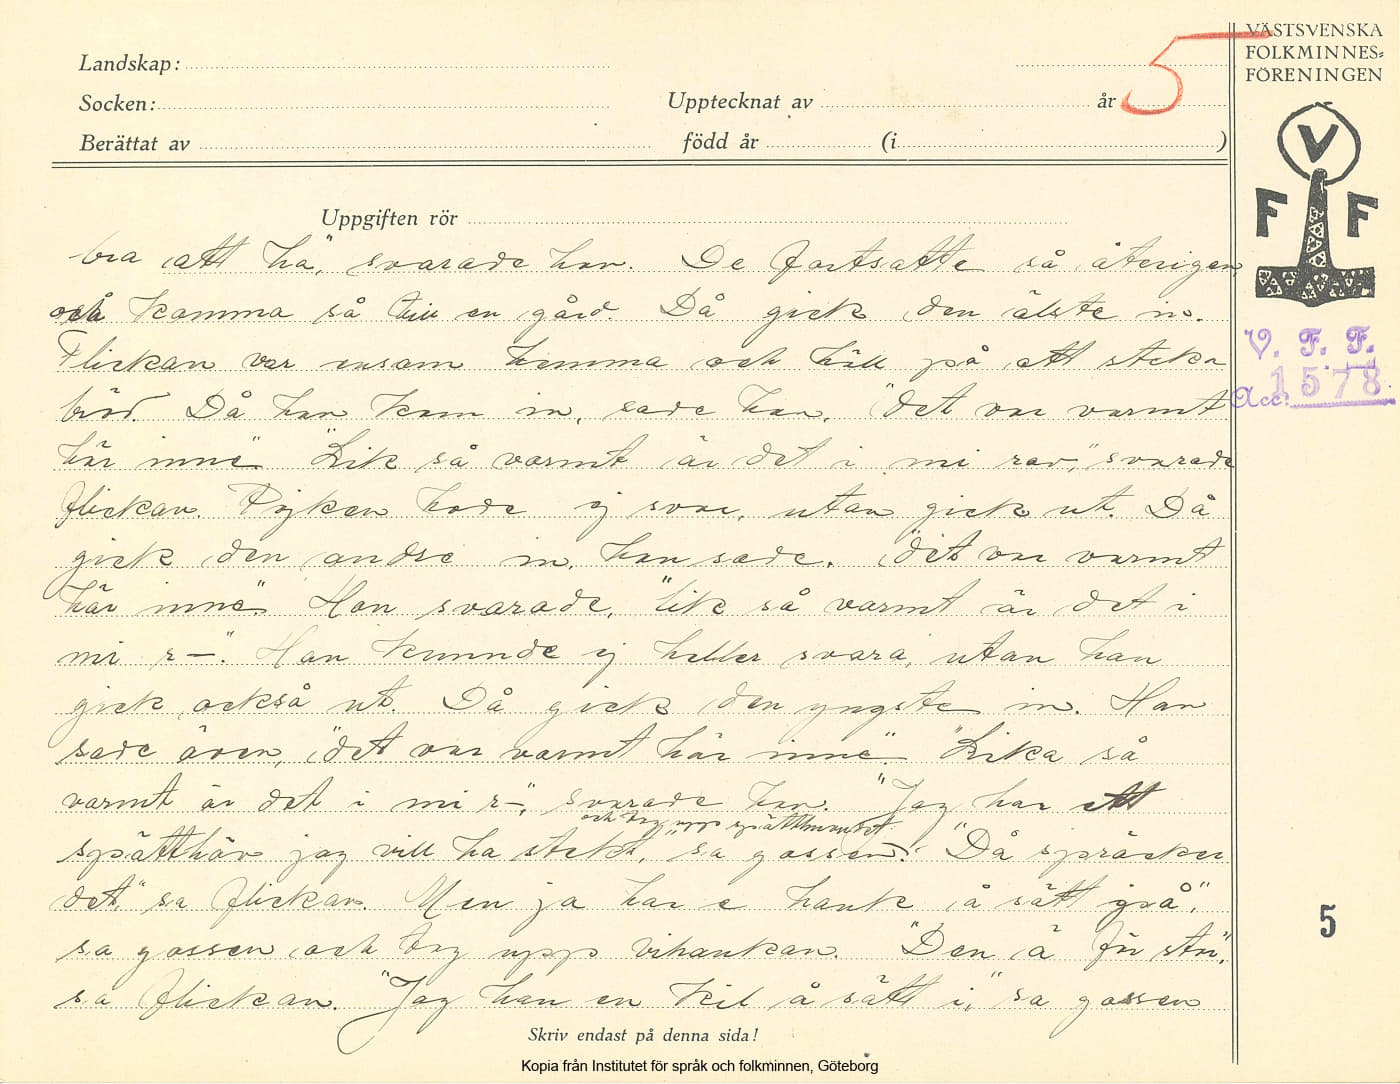 Landskap:
Socken:
Berättat av
Upptecknat av
år
5
född år
(i
)
VÄSTSVENSKA
FOLKMINNES-
FÖRENINGEN
V
F F
Uppgiften rör
bra att ha", svarade han. De fortsatte så återigen
och komma så till en gård. Då gick den älste in.
Flickan var ensam hemma och höll på att steka
bröd. Då han kom in, sade han, "det var varmt
här inne". "Lik så varmt är det i mi rav", svarade
flickan. Pojken hade ej svar, utan gick ut. Då
gick den andre in, han sade. "det var varmt
här inne". Hon svarade, "lik så varmt är det i
mi r—". Han kunnde ej heller svara, utan han
gick också ut. Då gick den yngste in. Han
sade även, "det var varmt här inne". "Lika så
varmt är det i mi r—", svarade hon. "Jag har ett
och tog upp spätthvudet
spätthöv jag vill ha stekt," sa gossen. "Då spräcker
det" sa flickan. Men ja har e hank å sätt på",
sa gossen och tog upp vihankan. "Den ä för stor",
sa flickan. "Jag har en kil å sätt i," sa gossen
V. F. F.
Acc. 1578.
5
Skriv endast på denna sida!
Kopia från Institutet för språk och folkminnen, Göteborg